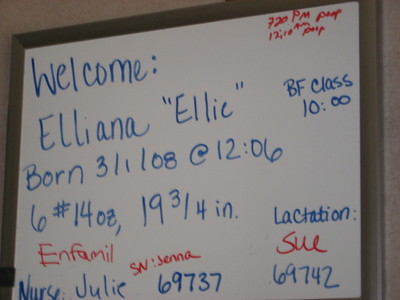 720 PM poop
12:10 AM poop
Welcome:
Elliana "Ellie"
BF Class
10:00
Born 3/1/08 @ 12:06
6 # 14oz, 19 3/4 in.
Lactation:
Enfamil
SN: Jenna
Sue
Nurse: Julie 69737
69742